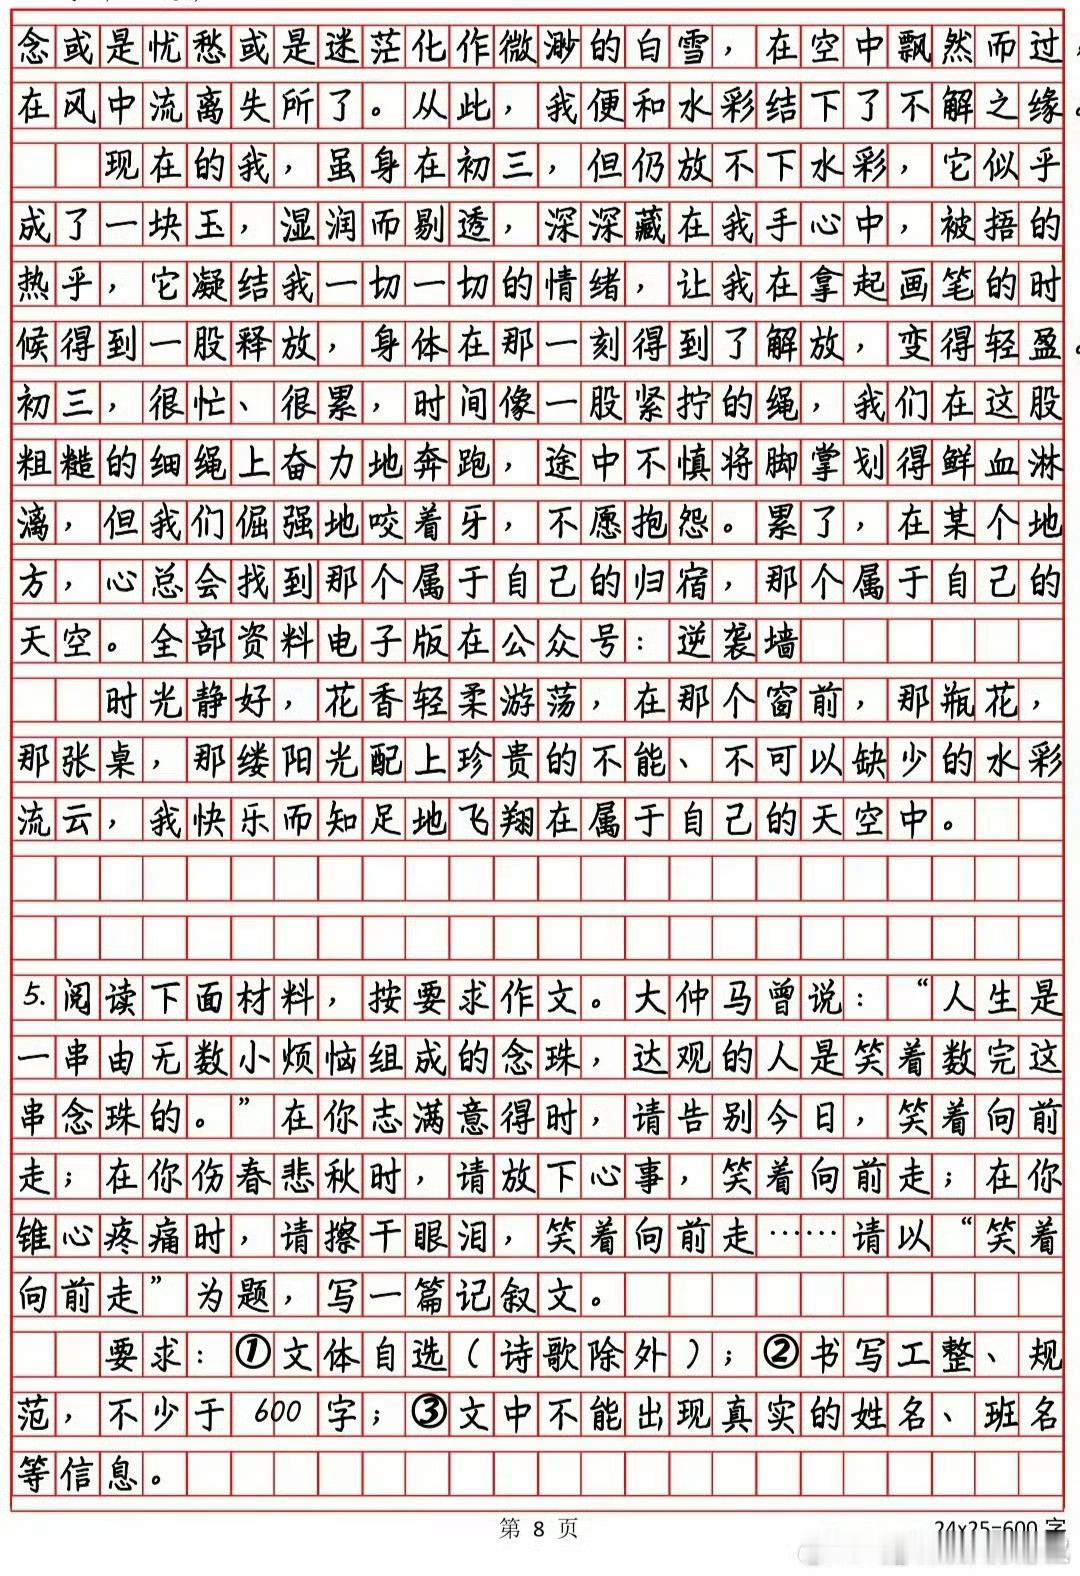 念或是忧愁或是迷茫化作微渺的白雪，在空中飘然而过，
在风中流离失所了。从此，我便和水彩结下了不解之缘。
现在的我，虽身在初三，但仍放不下水彩，它似乎
成了一块玉，湿润而剔透，深深藏在我手心中，被捂的
热乎，它凝结我一切一切的情绪，让我在拿起画笔的时
候得到一股释放，身体在那一刻得到了解放，变得轻盈。
初三，很忙、很累，时间像一股紧拧的绳，我们在这股
粗糙的细绳上奋力地奔跑，途中不慎将脚掌划得鲜血淋
漓，但我们倔强地咬着牙，不愿抱怨。累了，在某个地
方，心总会找到那个属于自己的归宿，那个属于自己的
天空。全部资料电子版在公众号：逆袭墙
时光静好，花香轻柔游荡，在那个窗前，那瓶花，
那张桌，那缕阳光配上珍贵的不能、不可以缺少的水彩
流云，我快乐而知足地飞翔在属于自己的天空中。
5. 阅读下面材料，按要求作文。大仲马曾说：“人生是
一串由无数小烦恼组成的念珠，达观的人是笑着数完这
串念珠的。”在你志满意得时，请告别今日，笑着向前
走；在你伤春悲秋时，请放下心事，笑着向前走；在你
锥心疼痛时，请擦干眼泪，笑着向前走……请以“笑着
向前走”为题，写一篇记叙文。
要求：①文体自选（诗歌除外）；②书写工整、规
范，不少于 600 字；③文中不能出现真实的姓名、班名
等信息。
第 8 页
24x25=600 字